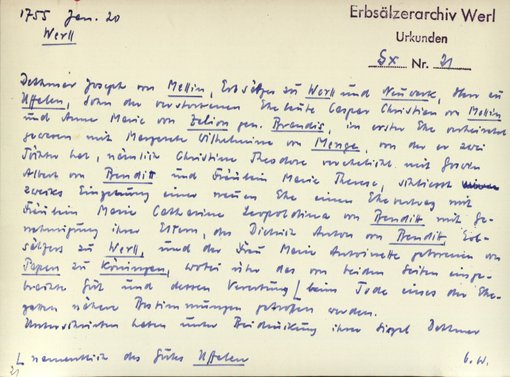 1755 Jan. 20
Werll
Erbsälzerarchiv Werl
Urkunden
Sx Nr. 21
Dethmar Joseph von Mellin, Erbsälzer zu Werll und Neuwerk, Herr zu
Uffelen, Sohn der verstorbenen Eheleute Caspar Christian von Mellin
und Anna Maria von Zelion gen. Brandis, in erster Ehe verheiratet
gewesen mit Margarete Wilhelmine von Menge, von der er zwei
Töchter hat, nämlich Christine Theodore verehelicht mit
Albert von Benditt und Fräulein Maria Therese, schliesst
zwecks Eingehung einer neuen Ehe einen Ehevertrag mit
Fräulein Maria Catharina Leopoldina von Benditt mit Ge-
nehmigung ihrer Eltern, des Dietrich Anton von Benditt Erb-
sälzers zu Werll, und der Frau Maria Antoinette geborenen von
Papen zu Köningen, wobei über das von beiden Seiten einge-
brachte Gut und dessen Vererbung ⌊ beim Tode eines der Ehe-
gatten nähere Bestimmungen getroffen werden.
Unterschrieben haben unter Beidrückung ihrer Siegel Dethmar
⌊ namentlich des Gutes Uffelen
b.w.
21